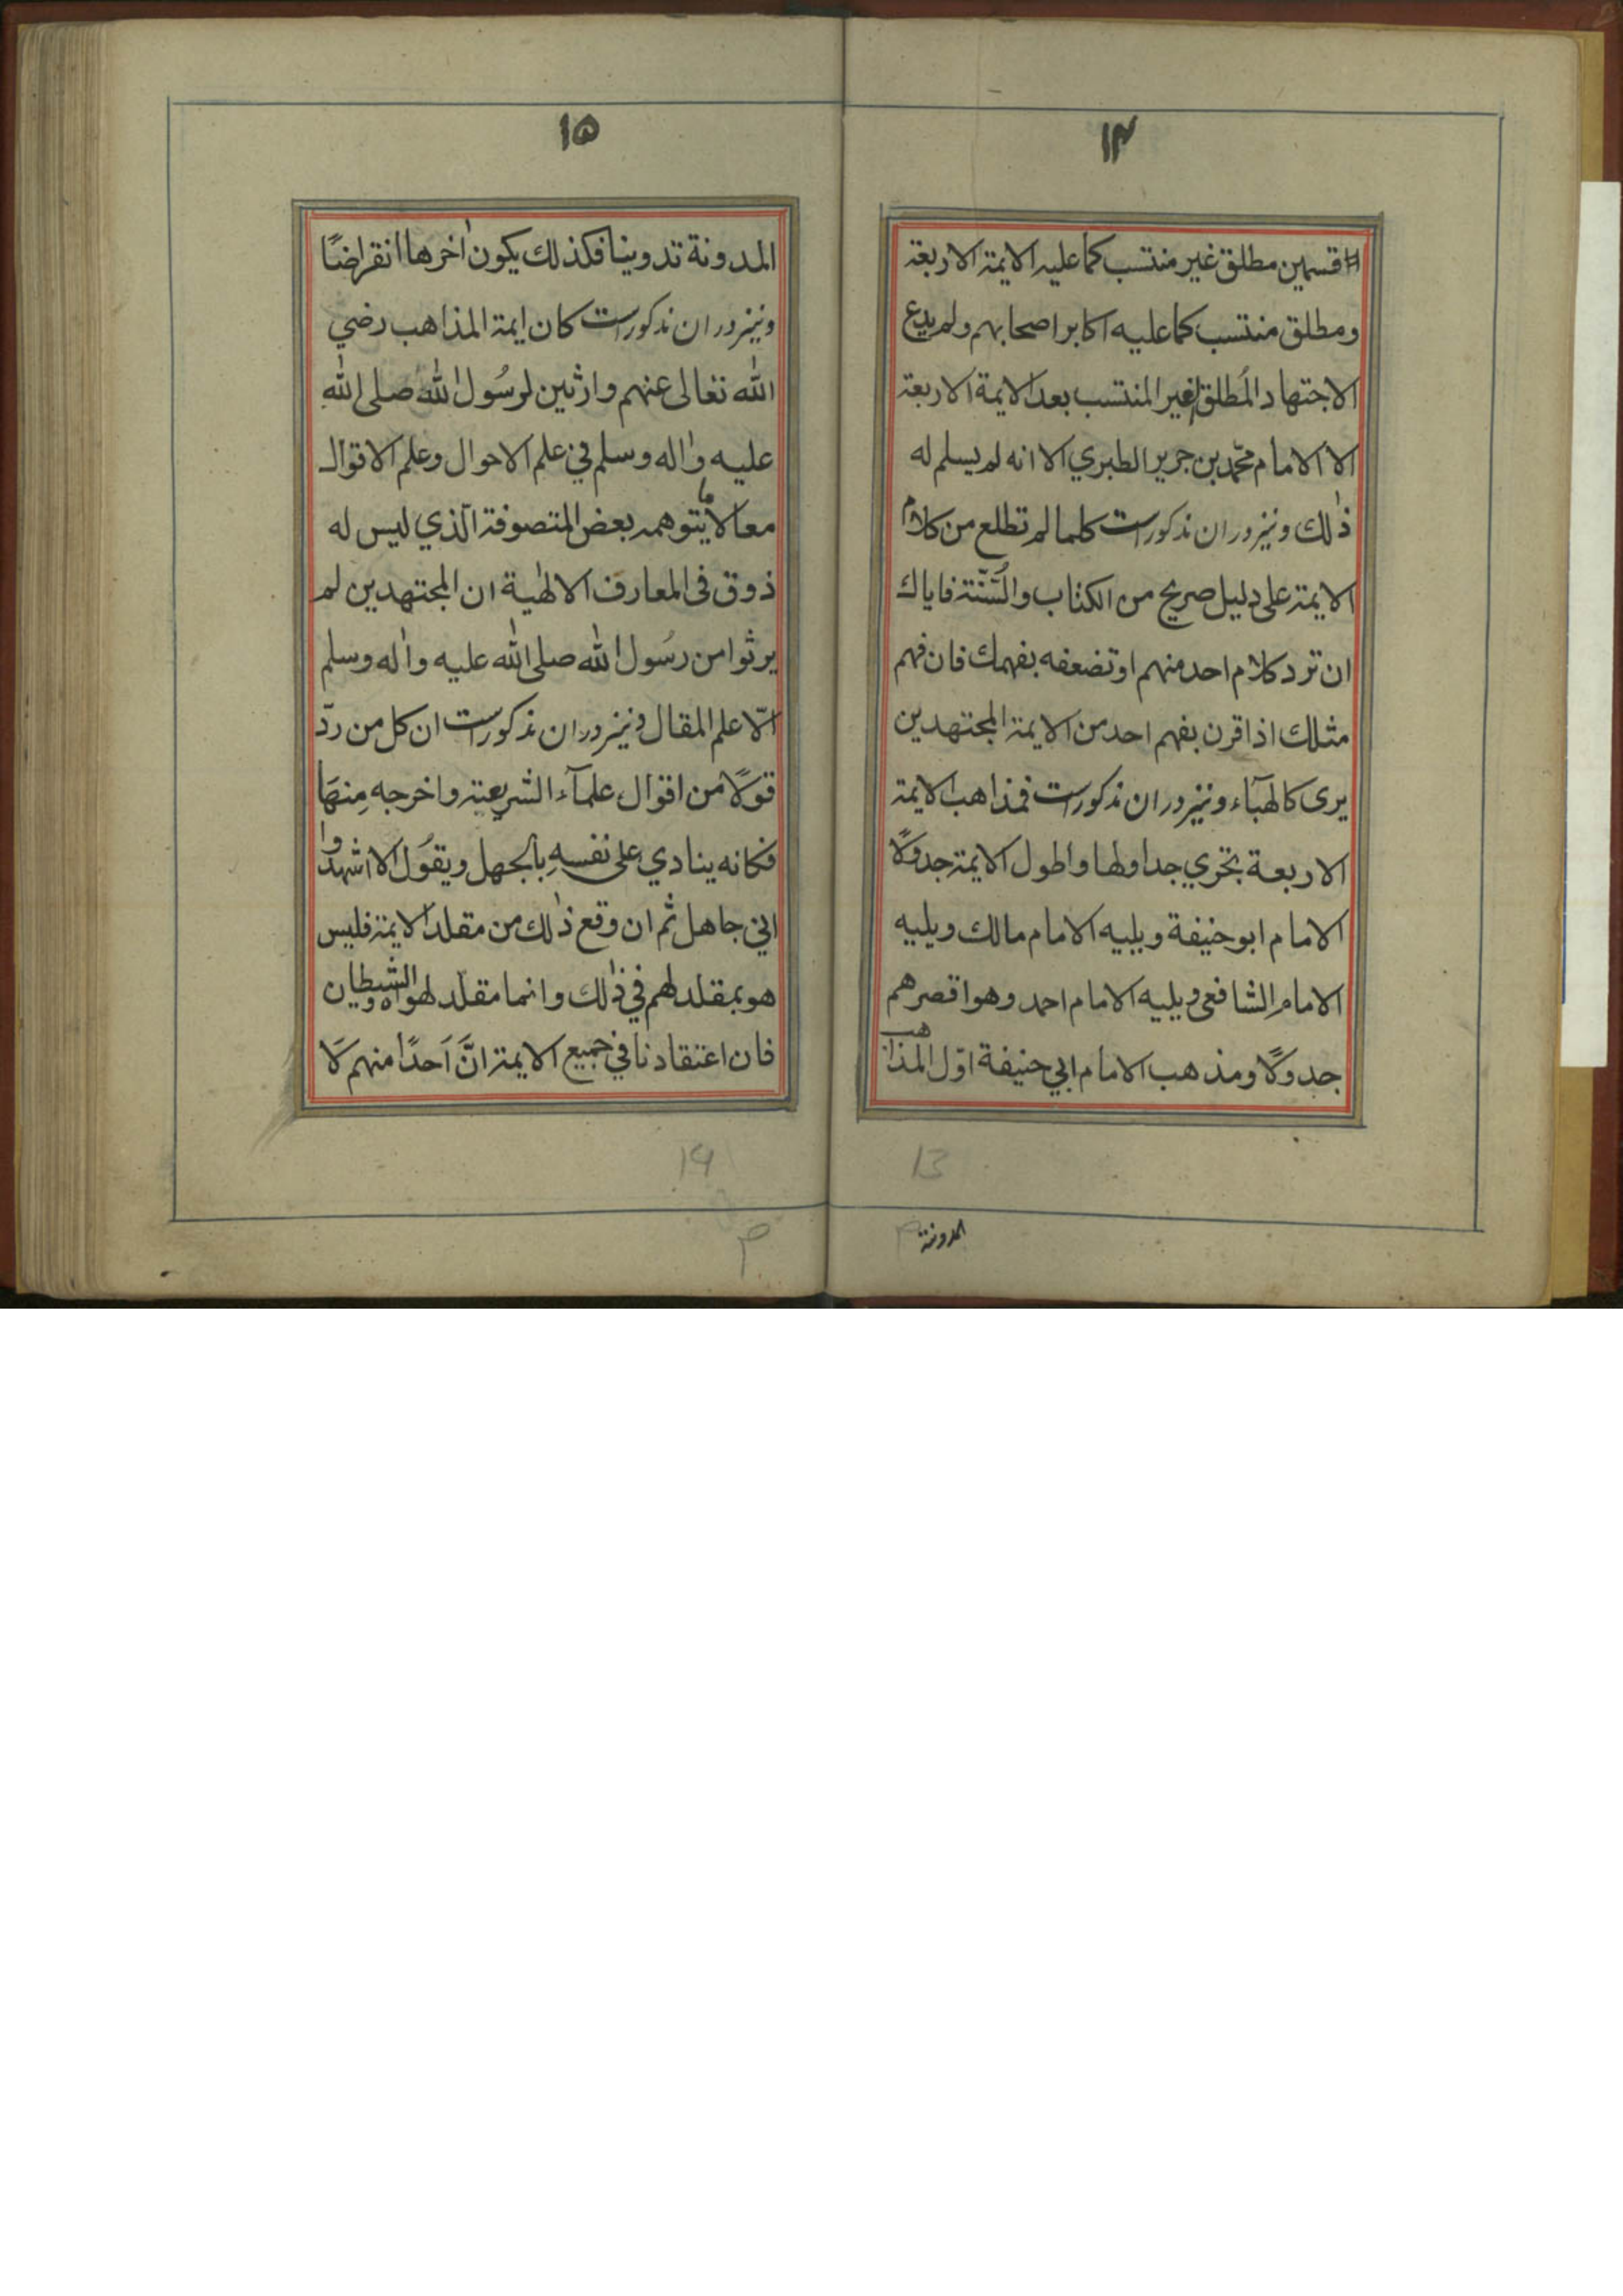 ۱۴
قسمين مطلق غير منتسب كما عليه الايمة الاربعة
ومطلق منتسب كما عليه اكابر اصحابهم ولم يدع
الاجتهاد المُطلق الغير المنتسب بعد الايمة الاربعة
الا الامام محمّد بن جرير الطبري الا انه لم يسلم له
ذٰلك ونيز دران مذكورست كلما لم تطلع من كلام
الايمة على دليل صريح من الكتاب والسُّنّة فاياك
ان ترد كلام احد منهم او تضعفه بفهمك فان فهم
مثلك اذا قرن بفهم احد من الايمة المجتهدين
يرى كالهبَآء ونيز دران مذكورست فمذاهب الايمة
الاربعة تجري جداولها واطول الايمة جدولًا
الامام ابو حنيفة ويليه الامام مالك ويليه
الامام الشافعى ويليه الامام احمد وهو اقصرهم
جدولًا ومذهب الامام ابي حنيفة اوّل المذاهب
المدونة
13
۱۵
المدونة تدوينا فكذلك يكون اٰخرها انقراضًا
ونيز دران مذكورست كان ايمة المذاهب رضي
الله تعالى عنهم وارثين لرسُول الله صلى الله
عليه واٰله وسلم في علم الاحوال وعلم الاقوال
معا لا ما يتوهمه بعض المتصوفة الّذي ليس له
ذوق فى المعارف الالٰهية ان المجتهدين لم
يرثوا من رسُول الله صلى الله عليه واٰله وسلم
الّا علم المقال ونيز دران مذكورست ان كل من ردّ
قولًا من اقوال علمآء الشريعة واخرجه مِنهَا
فكانه ينادي على نفسهِ بالجهل ويقوُل الا اشهدوا
اني جاهل ثم ان وقع ذٰلك من مقلد الايمة فليس
هو بمقلد لهم في ذٰلك وانما مقلّد لهواه والشيطان
فان اعتقادنا في جميع الايمة انَّ اَحدًا منهم لَا
۱۴